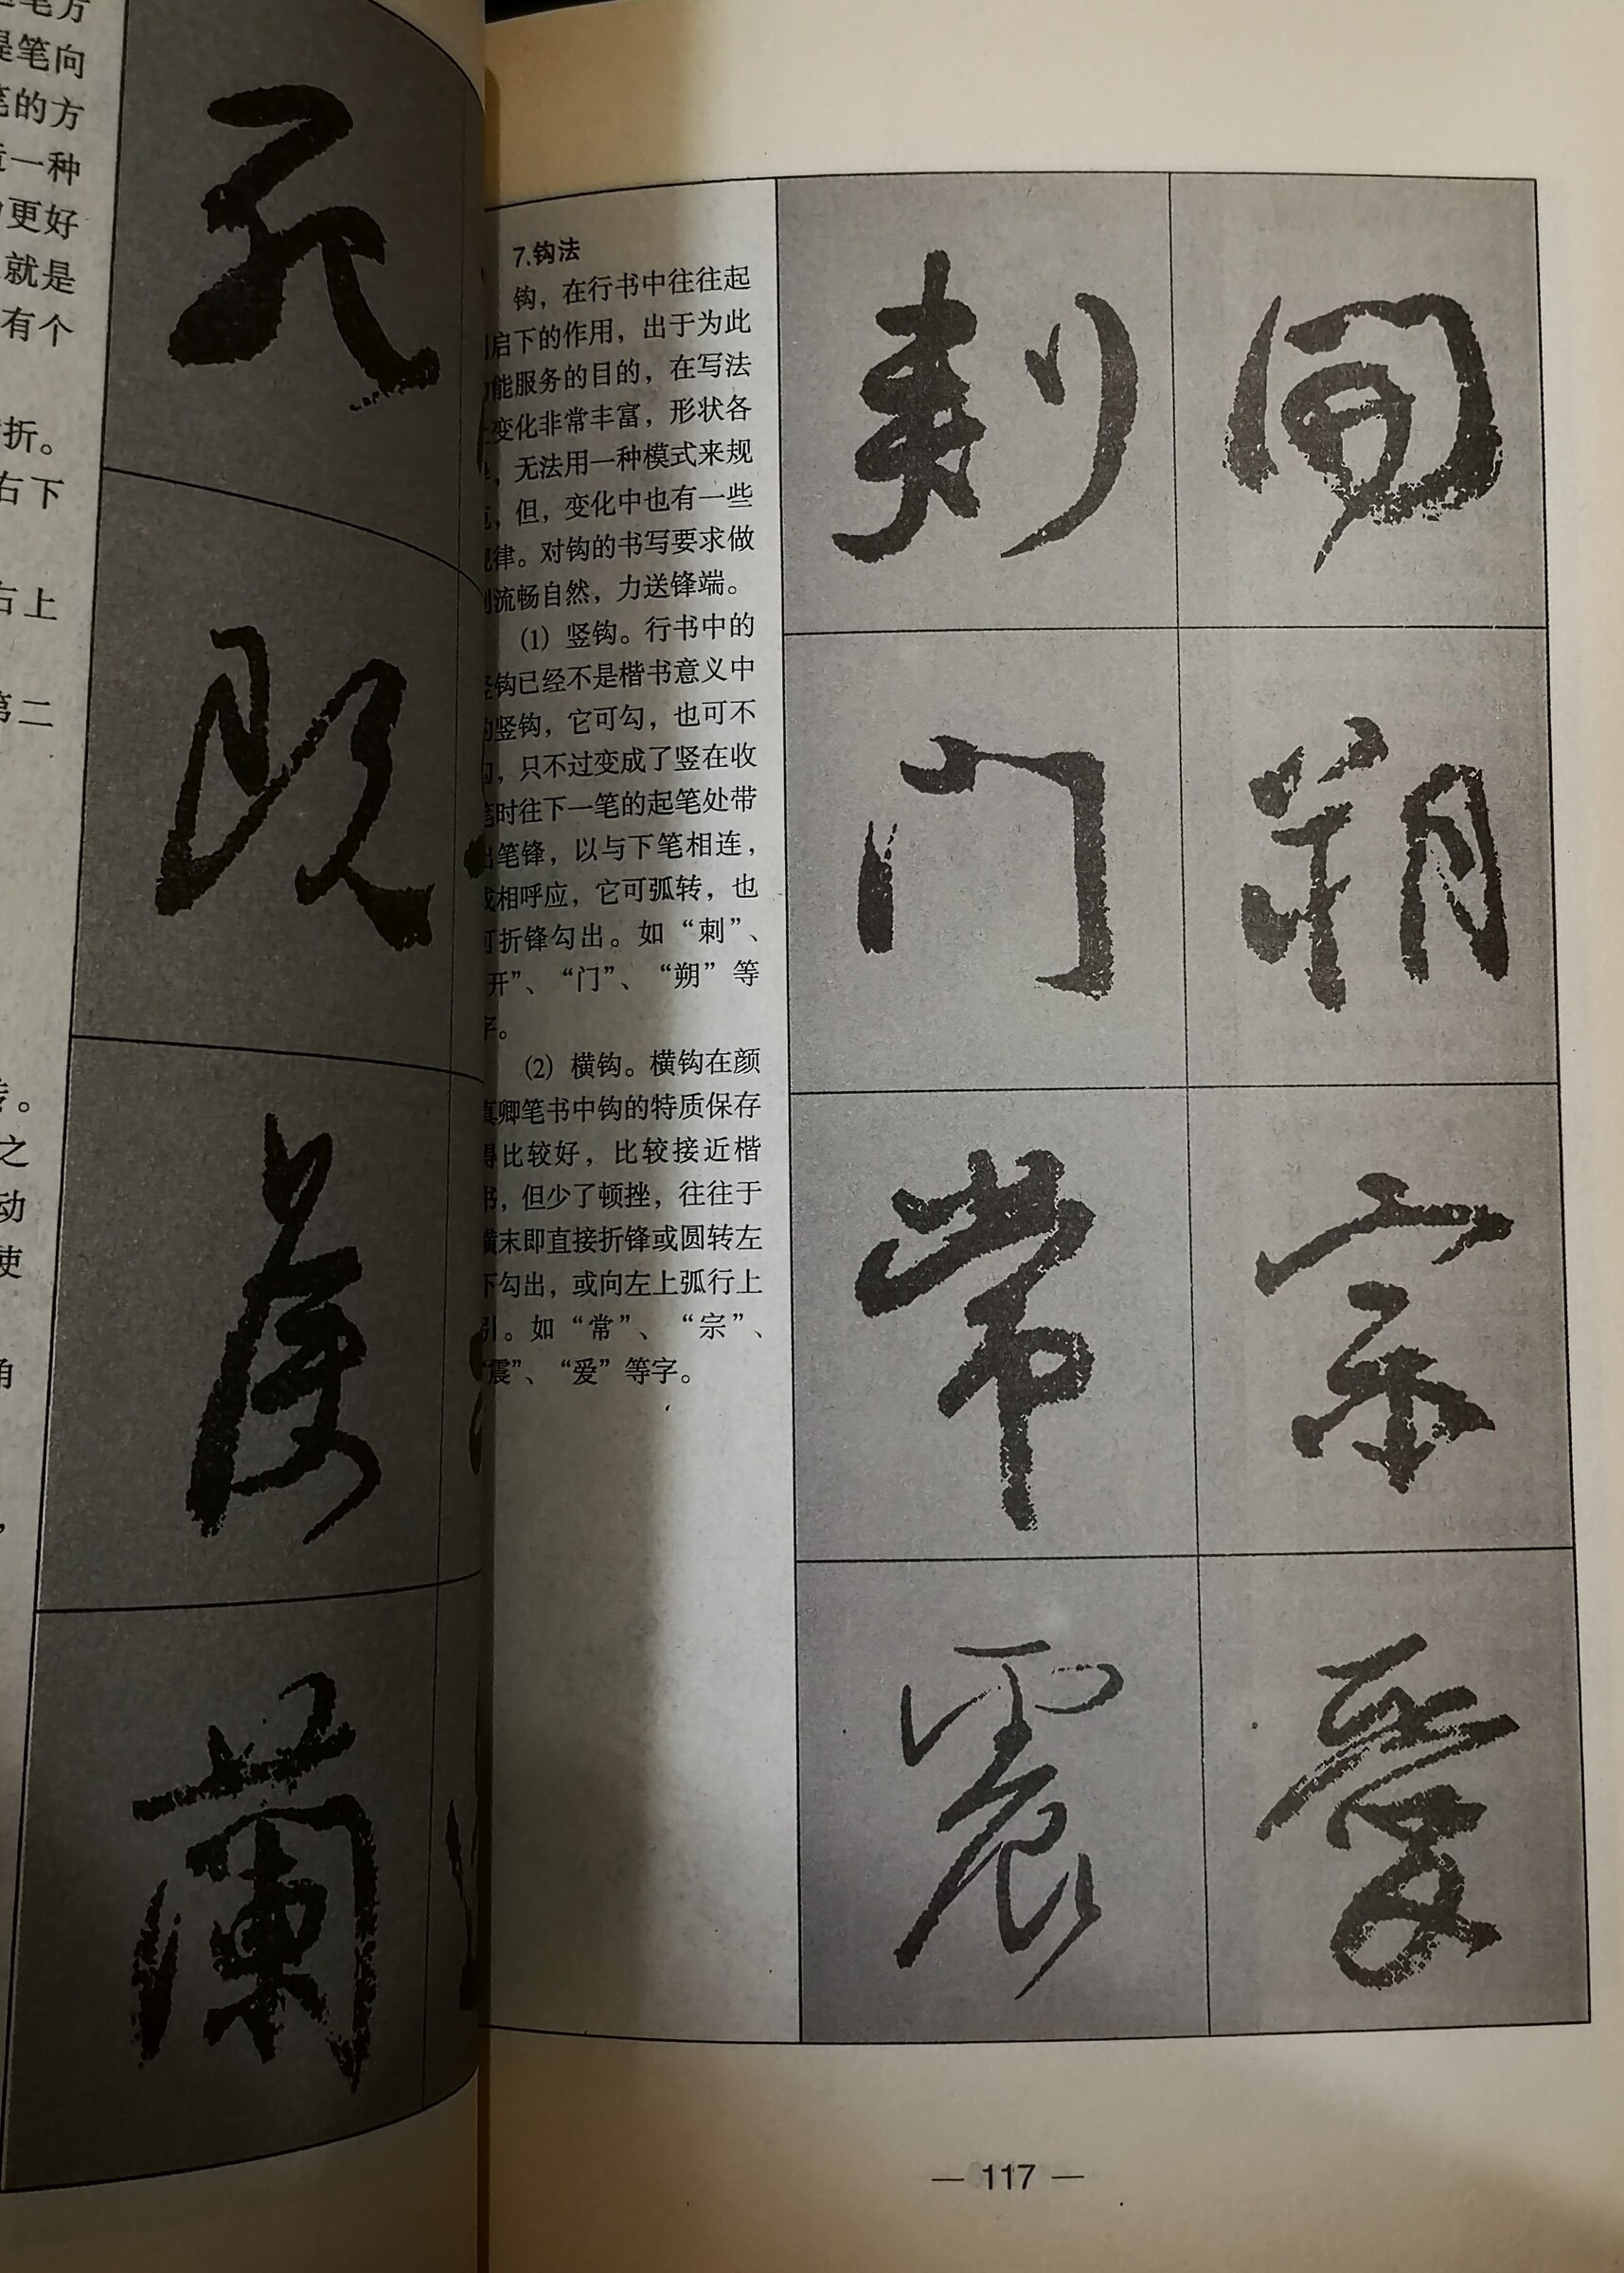 笔方
是笔向
笔的方
一种
更好
就是
有个
折。
右下
右上
第二
。
之
动
使
角
，
蘭
7.钩法
钩，在行书中往往起
启下的作用，出于为此
能服务的目的，在写法
变化非常丰富，形状各
，无法用一种模式来规
，但，变化中也有一些
律。对钩的书写要求做
流畅自然，力送锋端。
(1) 竖钩。行书中的
钩已经不是楷书意义中
竖钩，它可勾，也可不
，只不过变成了竖在收
时往下一笔的起笔处带
笔锋，以与下笔相连，
相呼应，它可弧转，也
折锋勾出。如“刺”、
开”、“门”、“朔”等
字。
(2) 横钩。横钩在颜
真卿笔书中钩的特质保存
得比较好，比较接近楷
书，但少了顿挫，往往于
横末即直接折锋或圆转左
下勾出，或向左上弧行上
引。如“常”、“宗”、
“震”、“爱”等字。
刺 開
门 朔
常 宗
震 爱
— 117 —